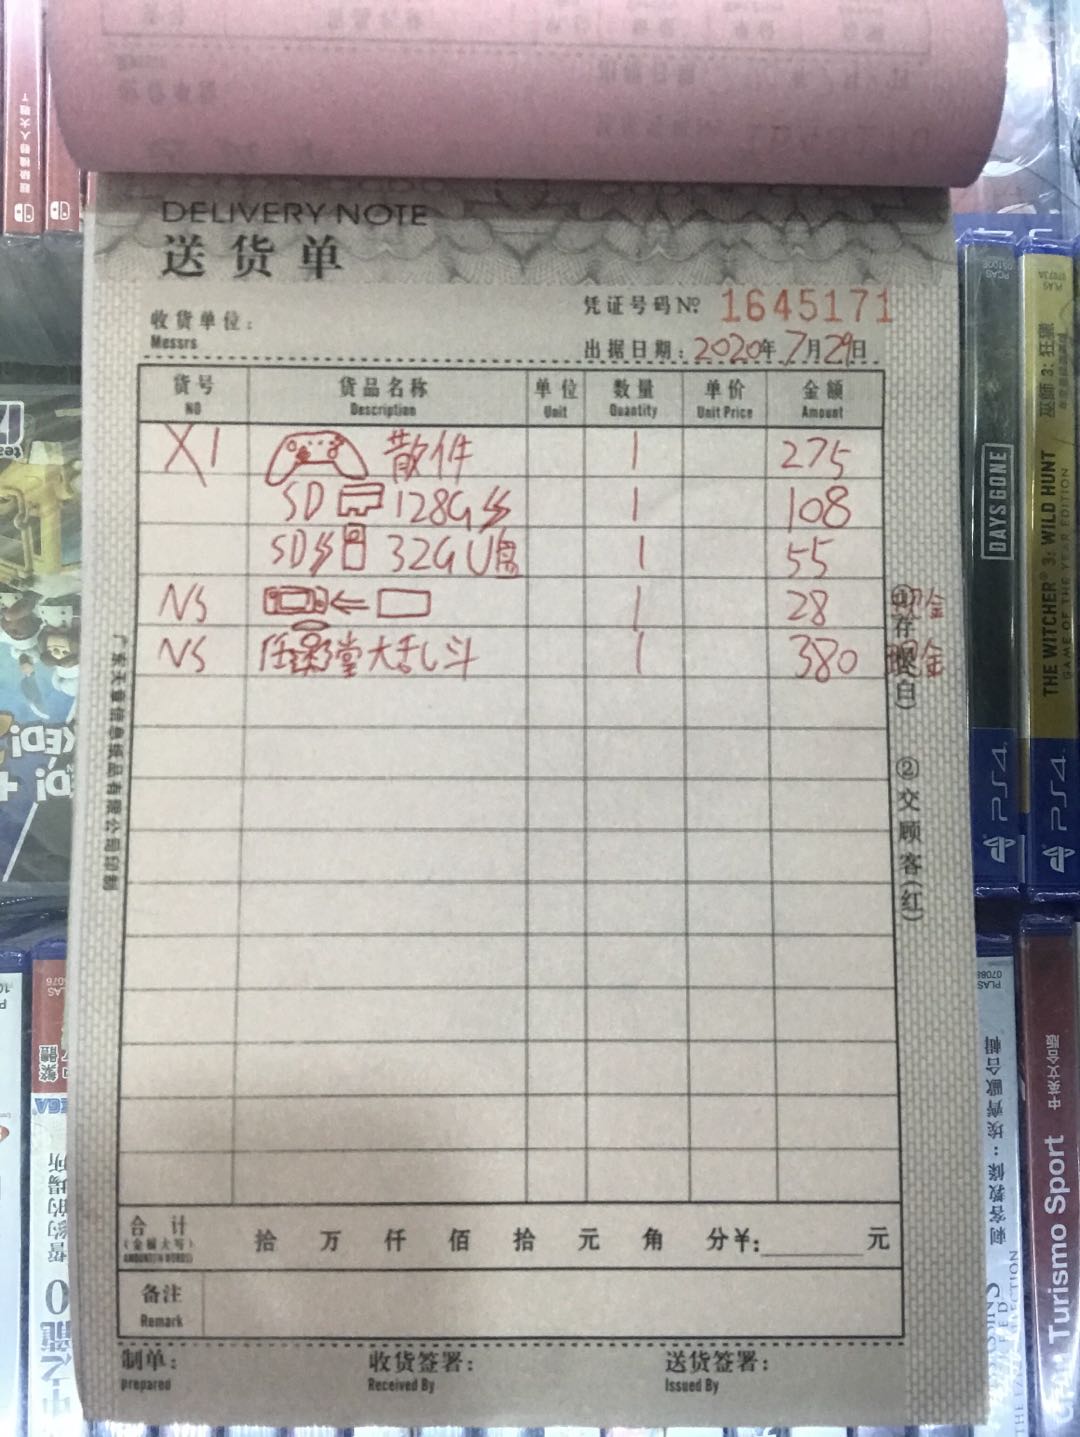 DELIVERY NOTE
送货单
凭证号码№ 1645171
收货单位:
Messrs
出据日期: 2020年7月29日
货号 货品名称 单位 数量 单价 金额
NO Description Unit Quantity Unit Price Amount
X1 散件 1 275
SD 128G 1 108
SD 32G U盘 1 55
NS 1 28 现金
NS 任天堂大乱斗 1 380 现金
合计 拾 万 仟 佰 拾 元 角 分¥: 元
(金额大写)
备注
Remark
制单: 收货签署: 送货签署:
prepared Received By Issued By
广东天章信息纸品有限公司印制
②交顾客(红)
DAYS GONE
PS4
巫師 3: 狂獵
THE WITCHER 3: WILD HUNT
GAME OF THE YEAR EDITION
PS4
刺客教條: 埃齊歐合輯
中英文合版
Turismo Sport